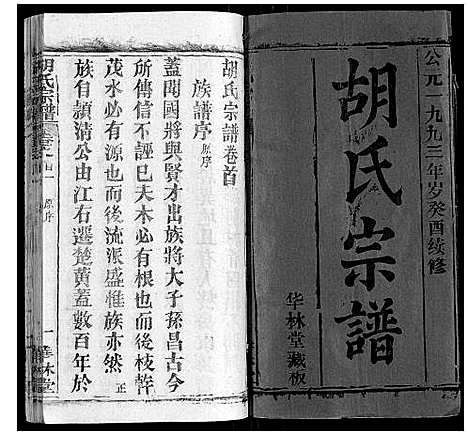 公元一九九三年岁癸酉续修
胡氏宗譜
华林堂藏板
胡氏宗譜卷首
族譜序 原序
蓋聞國將興賢才出族將大子孫昌古今
所傳信不誣已夫木必有根也而後枝幹
茂水必有源也而後流派盛惟族亦然 正
族自頴清公由江右遷楚黄蓋數百年於
胡氏宗譜
原序
一 華林堂